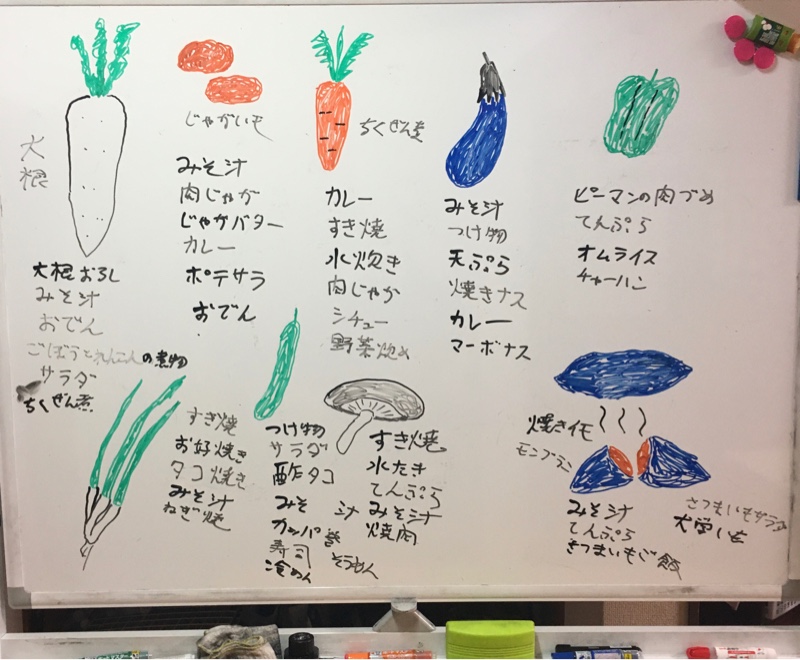 大根
大根おろし
みそ汁
おでん
ごぼうとれんこんの煮物
サラダ
ちくぜん煮
じゃがいも
みそ汁
肉じゃが
じゃがバター
カレー
ポテサラ
おでん
ちくぜん煮
カレー
すき焼
水炊き
肉じゃか
シチュー
野菜炒め
みそ汁
つけ物
天ぷら
焼きナス
カレー
マーボナス
ピーマンの肉づめ
てんぷら
オムライス
チャーハン
すき焼
お好焼き
タコ焼き
みそ汁
ねぎ焼
つけ物
サラダ
酢タコ
みそ 汁
カッパ巻
寿司
冷めん
そうめん
すき焼
水たき
てんぷら
みそ汁
焼肉
焼きイモ
モンブラン
みそ汁
てんぷら
さつまいもご飯
さつまいもサラダ